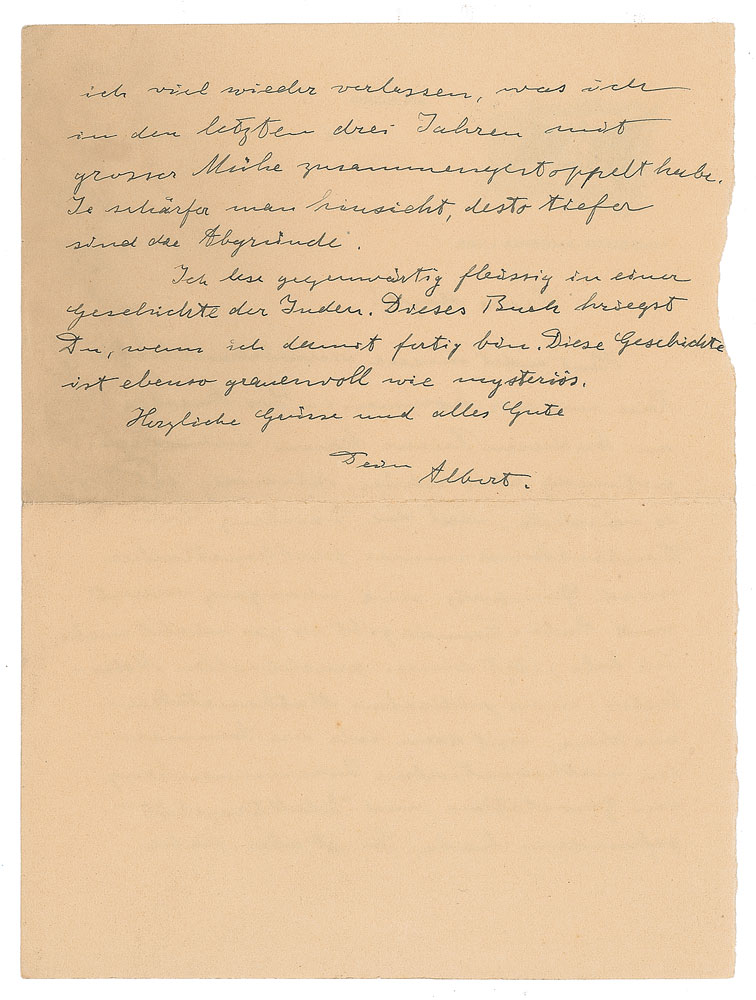 ich viel wieder verlassen, was ich
in den letzten drei Jahren mit
grosser Mühe zusammengestoppelt habe.
Je schärfer man hinsieht, desto tiefer
sind die Abgründe.
Ich lese gegenwärtig fleissig in einer
Geschichte der Juden. Dieses Buch kriegst
Du, wenn ich damit fertig bin. Diese Geschichte
ist ebenso grauenvoll wie mysteriös.
Herzliche Grüsse und alles Gute
Dein
Albert.